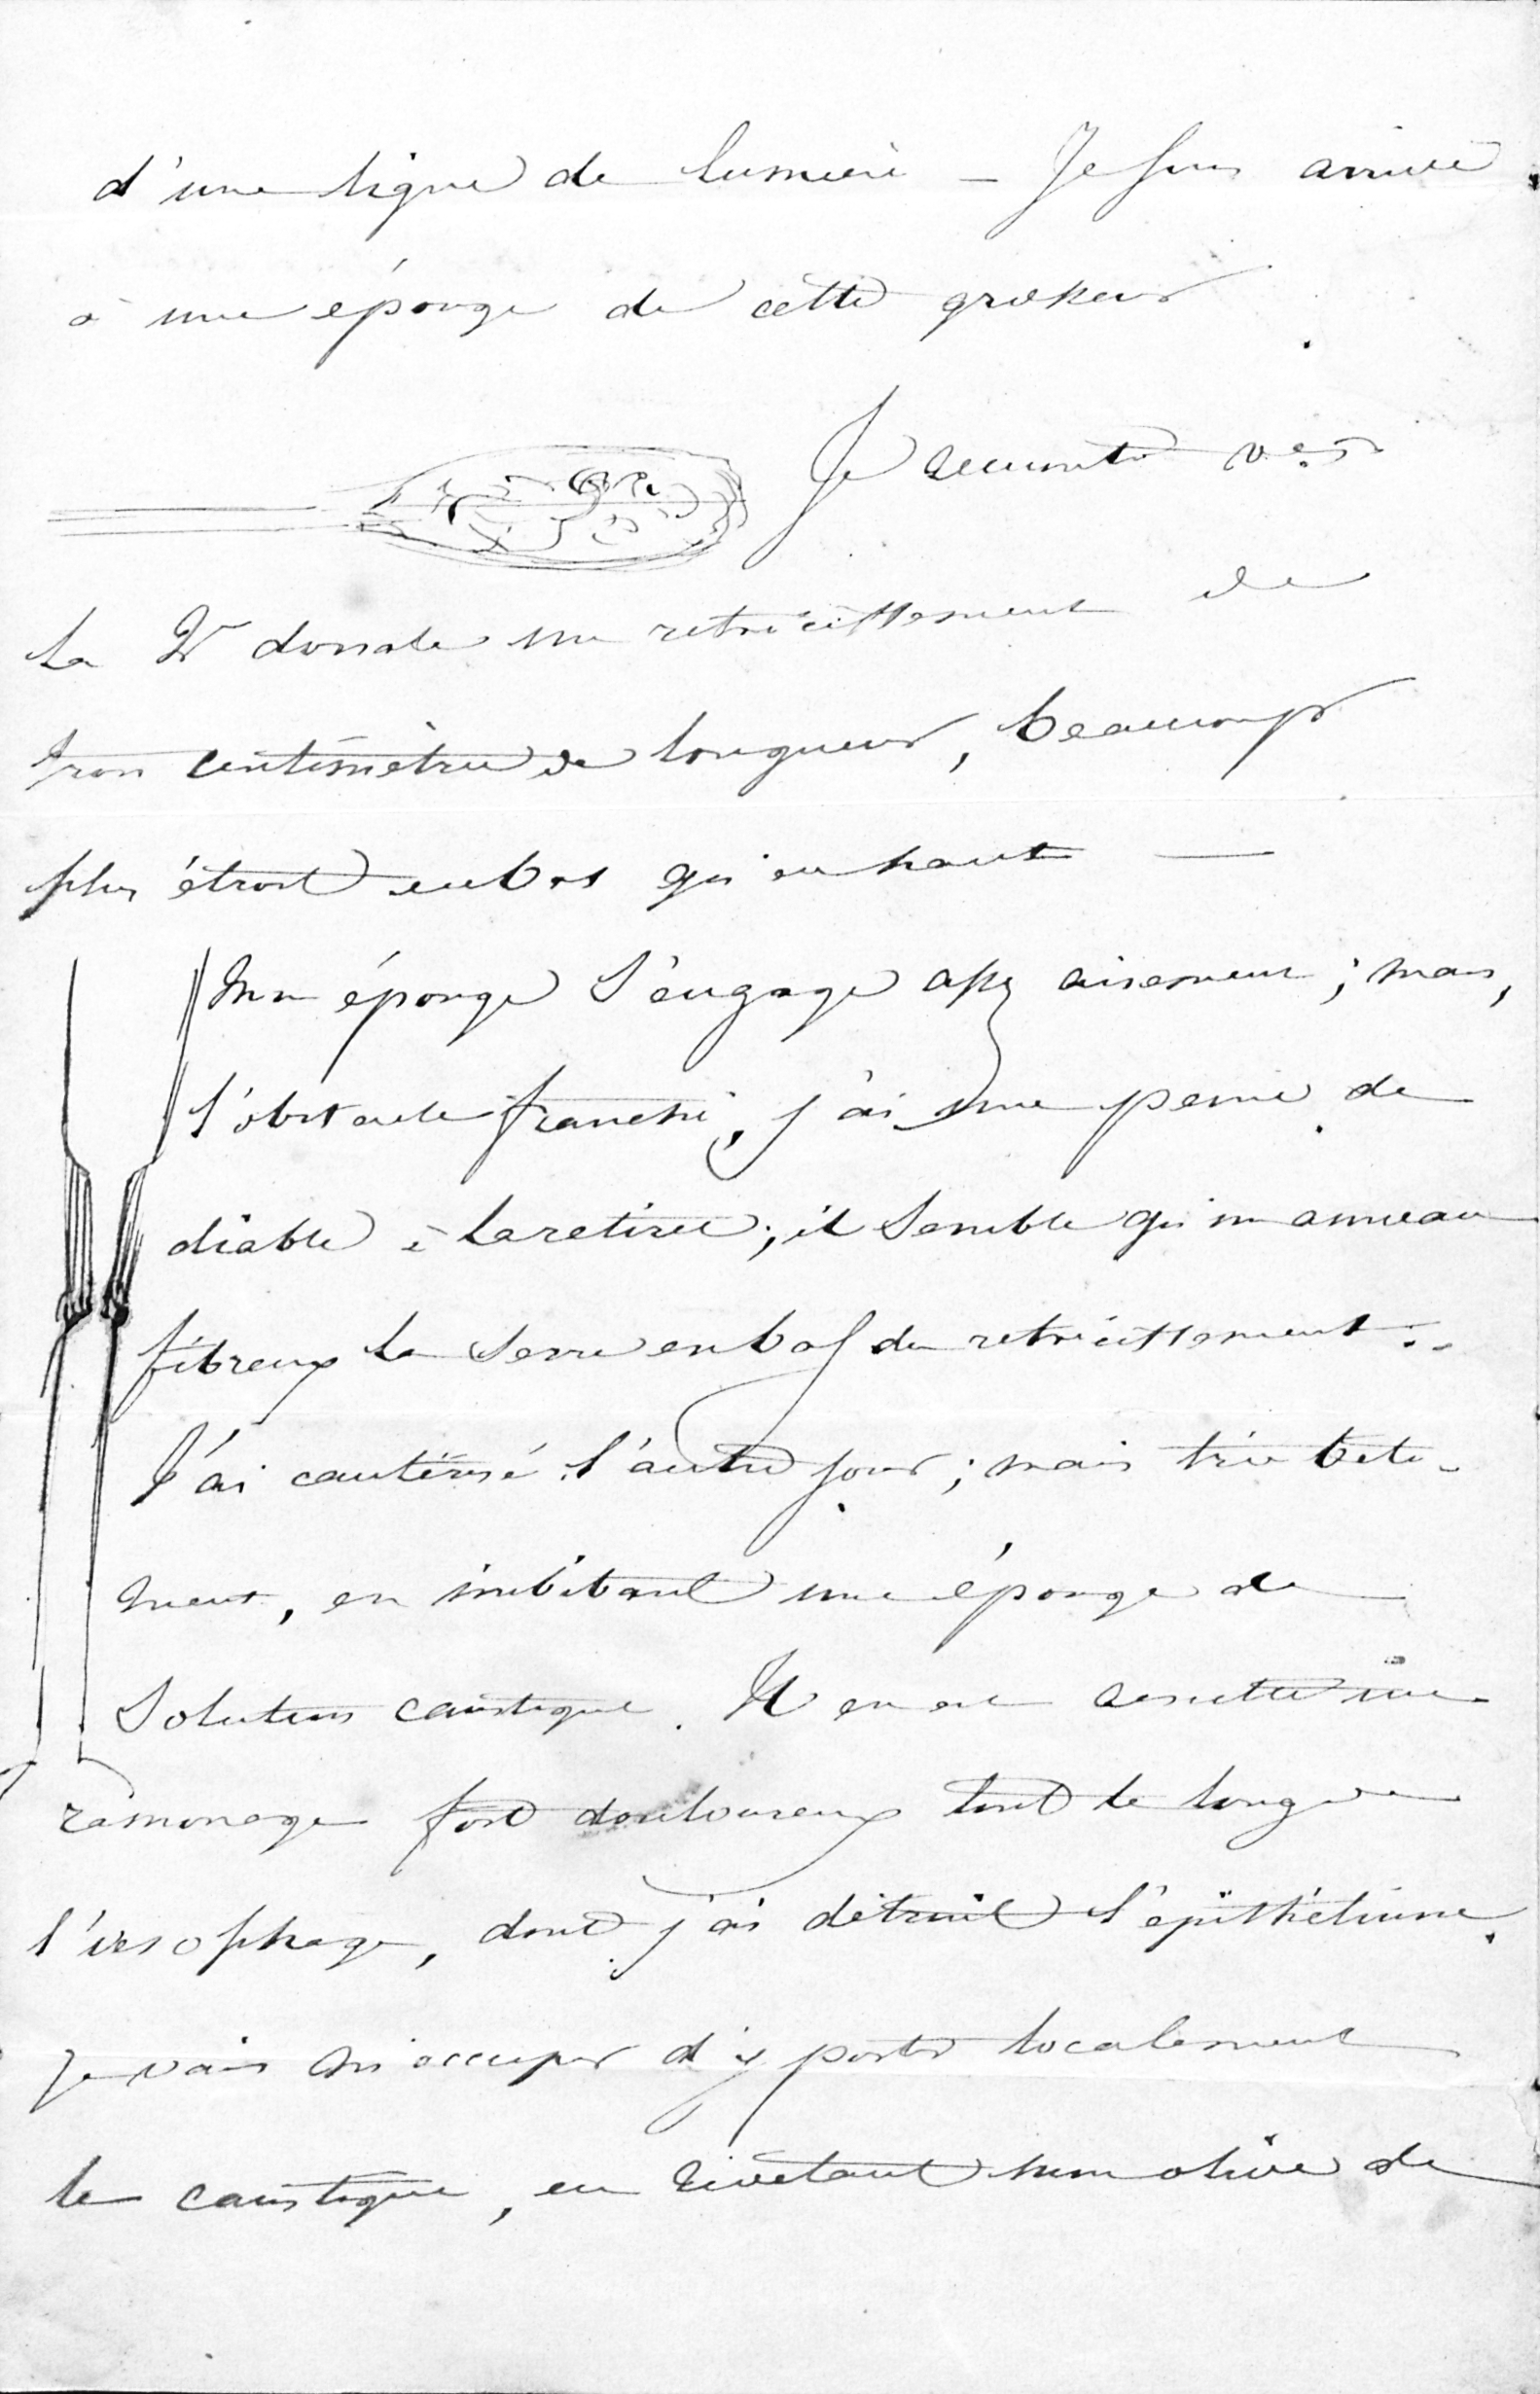 d'une ligne de lumière — Je suis arrivé
à une éponge de cette grosseur.
Je rencontre vers
la Vr dorsale un rétrécissement de
trois centimètres de longueur, beaucoup
plus étroit en bas qu'en haut —
Mon éponge s'engage assez aisément ; mais,
l'obstacle franchi, j'ai une peine de
diable à la retirer ; il semble qu'un anneau
fibreux la serre en bas du rétrécissement..
J'ai cautérisé l'autre jour ; mais très bête-
ment, en imbibant une éponge de
solution caustique. Il en est résulté un
ramonage fort douloureux tout le long de
l'œsophage, dont j'ai détruit l'épithélium.
Je vais m'occuper d'y porter localement
le caustique, en revêtant mon olive de